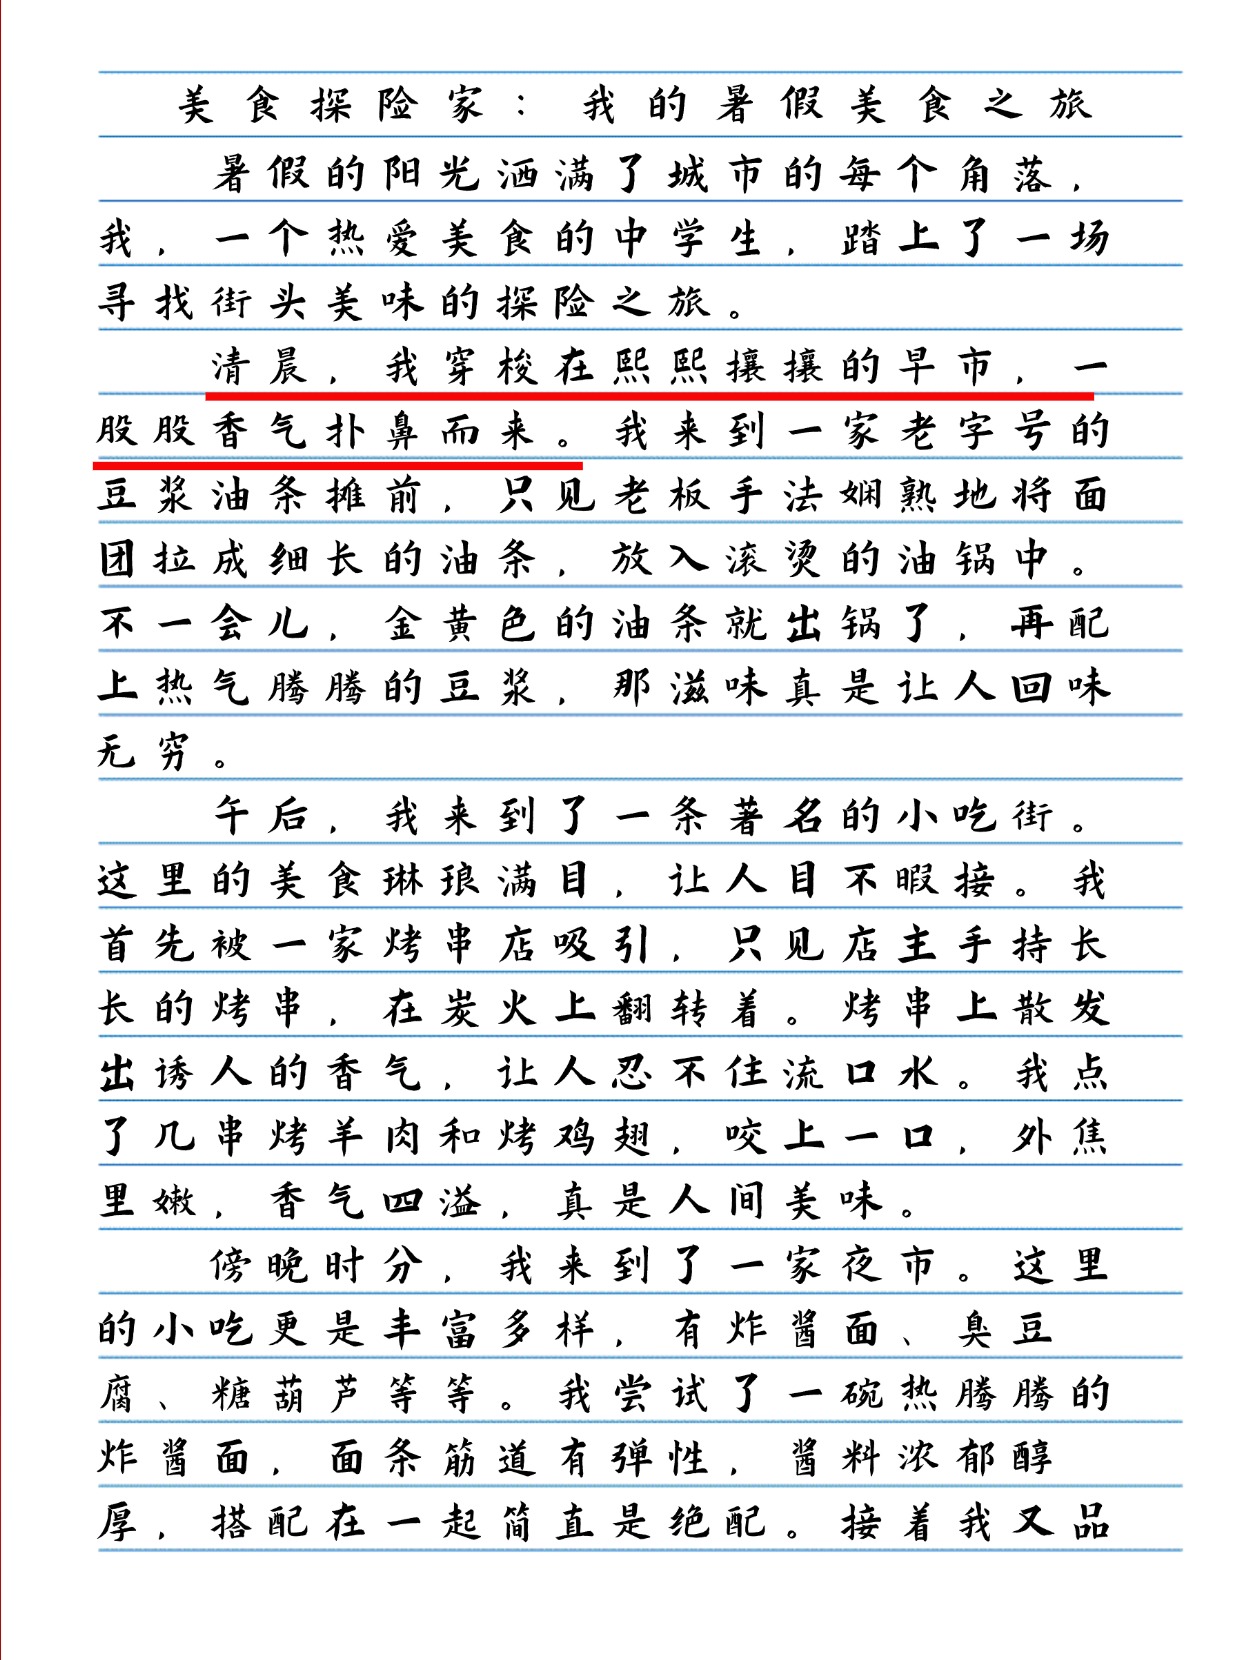 美食探险家：我的暑假美食之旅
暑假的阳光洒满了城市的每个角落，
我，一个热爱美食的中学生，踏上了一场
寻找街头美味的探险之旅。
清晨，我穿梭在熙熙攘攘的早市，一
股股香气扑鼻而来。我来到一家老字号的
豆浆油条摊前，只见老板手法娴熟地将面
团拉成细长的油条，放入滚烫的油锅中。
不一会儿，金黄色的油条就出锅了，再配
上热气腾腾的豆浆，那滋味真是让人回味
无穷。
午后，我来到了一条著名的小吃街。
这里的美食琳琅满目，让人目不暇接。我
首先被一家烤串店吸引，只见店主手持长
长的烤串，在炭火上翻转着。烤串上散发
出诱人的香气，让人忍不住流口水。我点
了几串烤羊肉和烤鸡翅，咬上一口，外焦
里嫩，香气四溢，真是人间美味。
傍晚时分，我来到了一家夜市。这里
的小吃更是丰富多样，有炸酱面、臭豆
腐、糖葫芦等等。我尝试了一碗热腾腾的
炸酱面，面条筋道有弹性，酱料浓郁醇
厚，搭配在一起简直是绝配。接着我又品